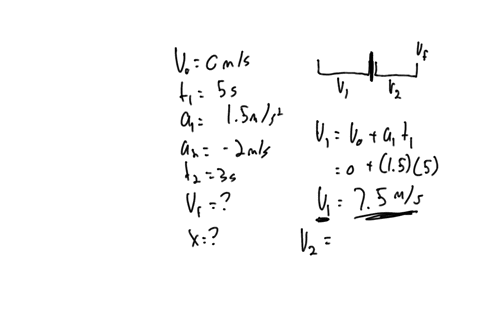 V₀ = 0 m/s
t₁ = 5s
a₁ = 1.5m/s²
a₂ = -2m/s
t₂ = 3s
V_f = ?
x = ?
V_f
V₁ V₂
V₁ = V₀ + a₁ t₁
= 0 + (1.5)(5)
V₁ = 7.5 m/s
V₂ =